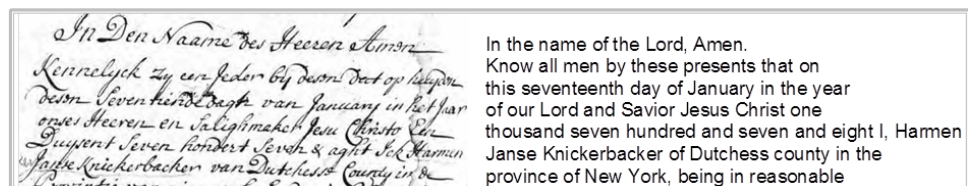 In Den Naame des Heeren Amen
Kennelyck Zy een Jeder by desen dat op heyden
desen Seventiende dagh van January in het Jaar
onses Heeren en Salighmaker Jesu Christo Een
Duysent Seven hondert Seven & aght Ick Harmen
Janse Knickerbacker van Dutchess County in de
In the name of the Lord, Amen.
Know all men by these presents that on
this seventeenth day of January in the year
of our Lord and Savior Jesus Christ one
thousand seven hundred and seven and eight I, Harmen
Janse Knickerbacker of Dutchess county in the
province of New York, being in reasonable